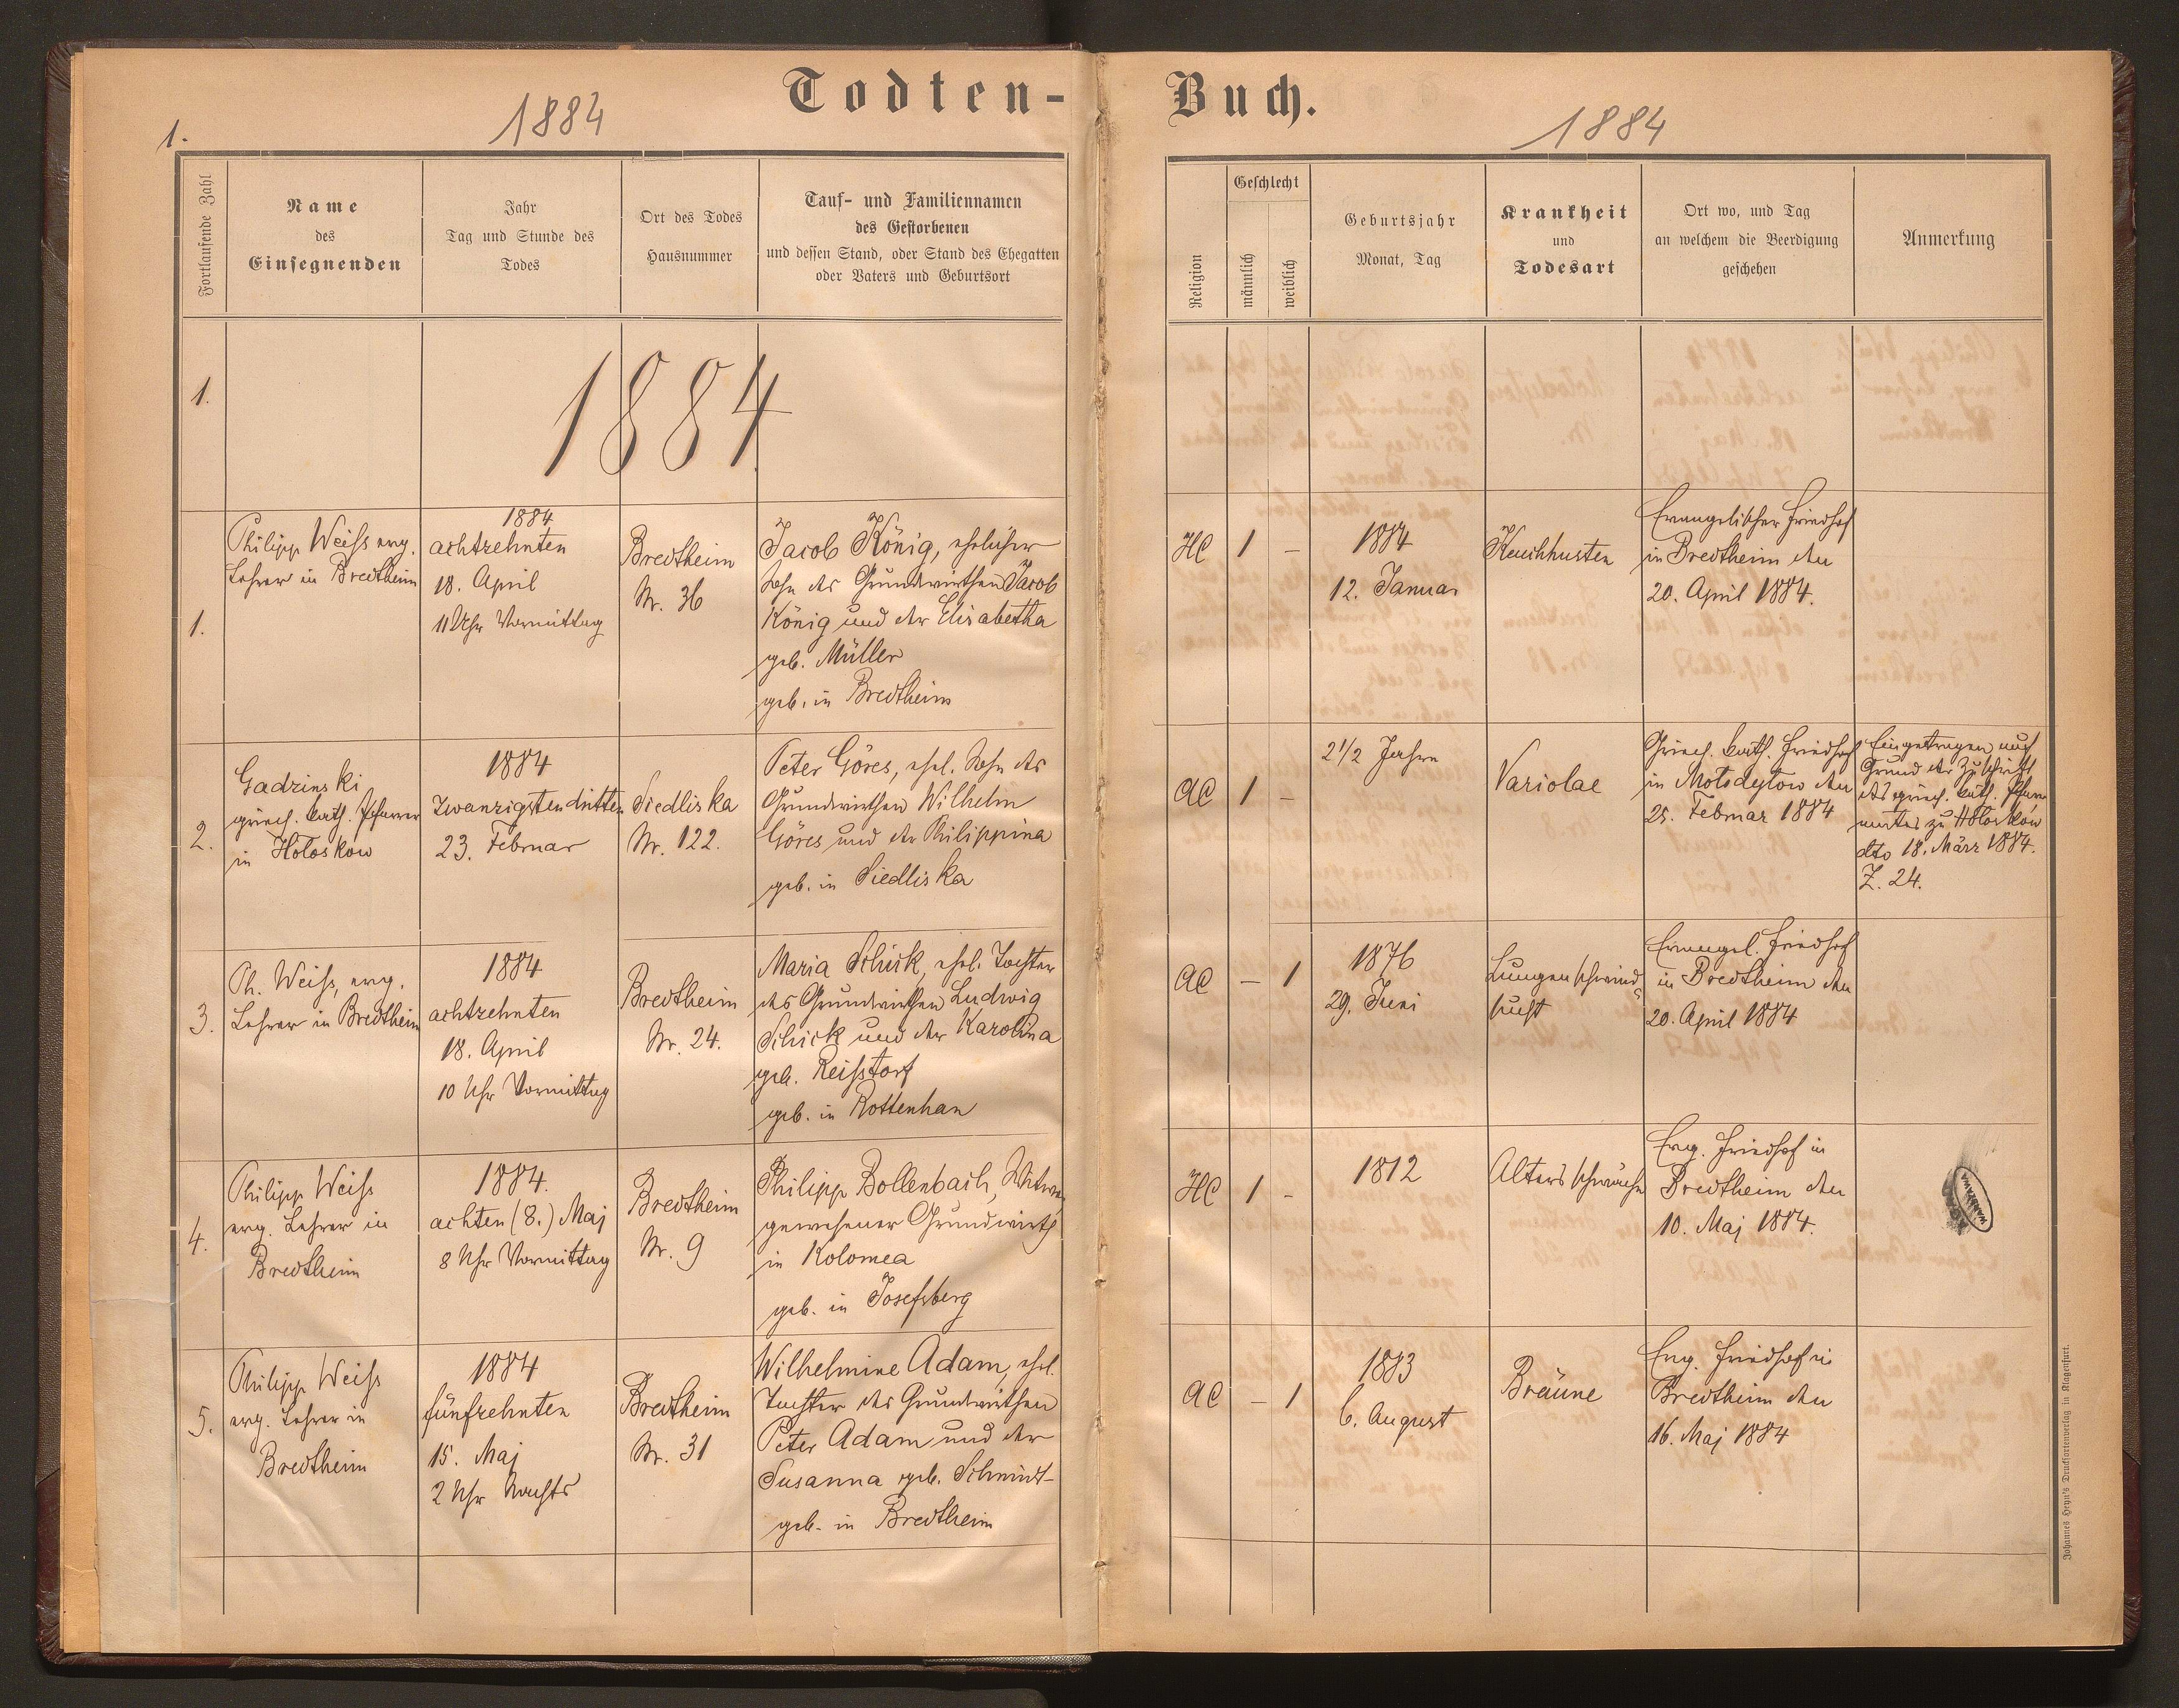 Todten-
Buch.
1.
1884
1884
Fortlaufende Zahl
Name
des
Einsegnenden
Jahr
Tag und Stunde des
Todes
Ort des Todes
Hausnummer
Tauf- und Familiennamen
des Gestorbenen
und dessen Stand, oder Stand des Ehegatten
oder Vaters und Geburtsort
Religion
Geschlecht
männlich
weiblich
Geburtsjahr
Monat, Tag
Krankheit
und
Todesart
Ort wo, und Tag
an welchem die Beerdigung
geschehen
Anmerkung
1.
1884
1.
Philipp Weiss evg.
Lehrer in Bredtheim
1884
achtzehnten
18. April
11 Uhr Vormittag
Bredtheim
Nr. 36
Jacob König, ehelicher
Sohn des Grundwirthen Jacob
König und der Elisabetha
geb. Müller
geb. in Bredtheim
HC
1
–
1884
12. Januar
Keuchhusten
Evangelischer Friedhof
in Bredtheim den
20. April 1884.
2.
Gadzinski
griech. kath. Pfarrer
in Hołoskow
1884
Zwanzigstendritten
23. Februar
Siedliska
Nr. 122.
Peter Göres, ehel. Sohn des
Grundwirthen Wilhelm
Göres und der Philippina
geb. in Siedliska
AC
1
–
2 1/2 Jahre
Variolae
Griech. kath. Friedhof
in Mołodyłow den
25. Februar 1884
Eingetragen auf
Grund der Zuschrift
des griech. kath. Pfarr
amtes zu Hołoskow
dto 18. März 1884.
Z. 24.
3.
Ph. Weiss, evg.
Lehrer in Bredtheim
1884
achtzehnten
18. April
10 Uhr Vormittag
Bredtheim
Nr. 24.
Maria Schick, ehel. Tochter
des Grundwirthen Ludwig
Schick und der Karolina
geb. Reisstorf
geb. in Rottenhan
AC
–
1
1876
29. Juni
Lungenschwind
sucht
Evangel. Friedhof
in Bredtheim den
20. April 1884
4.
Philipp Weiss
evg. Lehrer in
Bredtheim
1884.
achten (8.) Maj
8 Uhr Vormittag
Bredtheim
Nr. 9
Philipp Bollenbach, Witwer
gewesener Grundwirth
in Kolomea
geb. in Josefsberg
HC
1
–
1812
Altersschwäche
Evg. Friedhof in
Bredtheim den
10. Maj 1884.
5.
Philipp Weiss
evg. Lehrer in
Bredtheim
1884
fünfzehnten
15. Maj
2 Uhr Nachts
Bredtheim
Nr. 31
Wilhelmine Adam, ehel.
Tochter des Grundwirthen
Peter Adam und der
Susanna geb. Schmidt
geb. in Bredtheim
AC
–
1
1883
6. August
Bräune
Evg. Friedhof in
Bredtheim den
16. Maj 1884
Johannes Heyn's Drucksortenverlag in Klagenfurt.